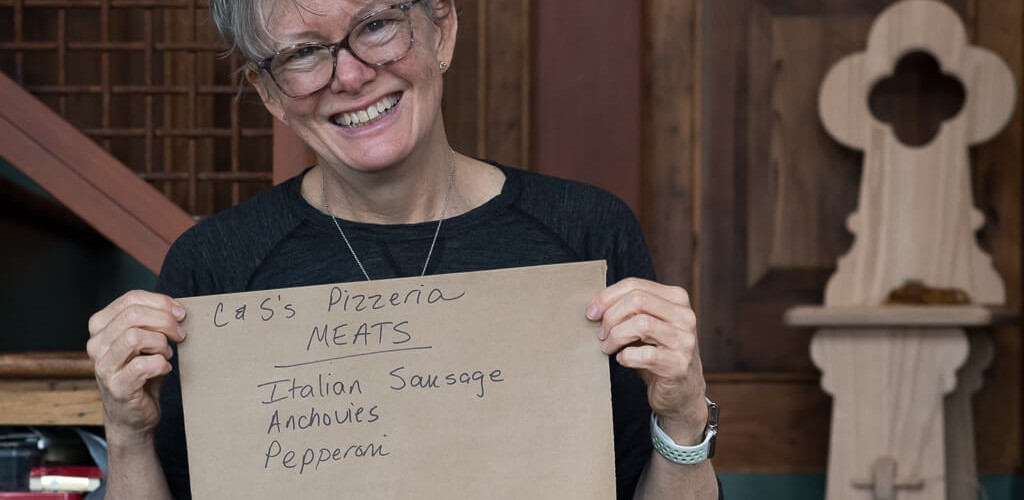 C & S's Pizzeria
MEATS
Italian Sausage
Anchovies
Pepperoni